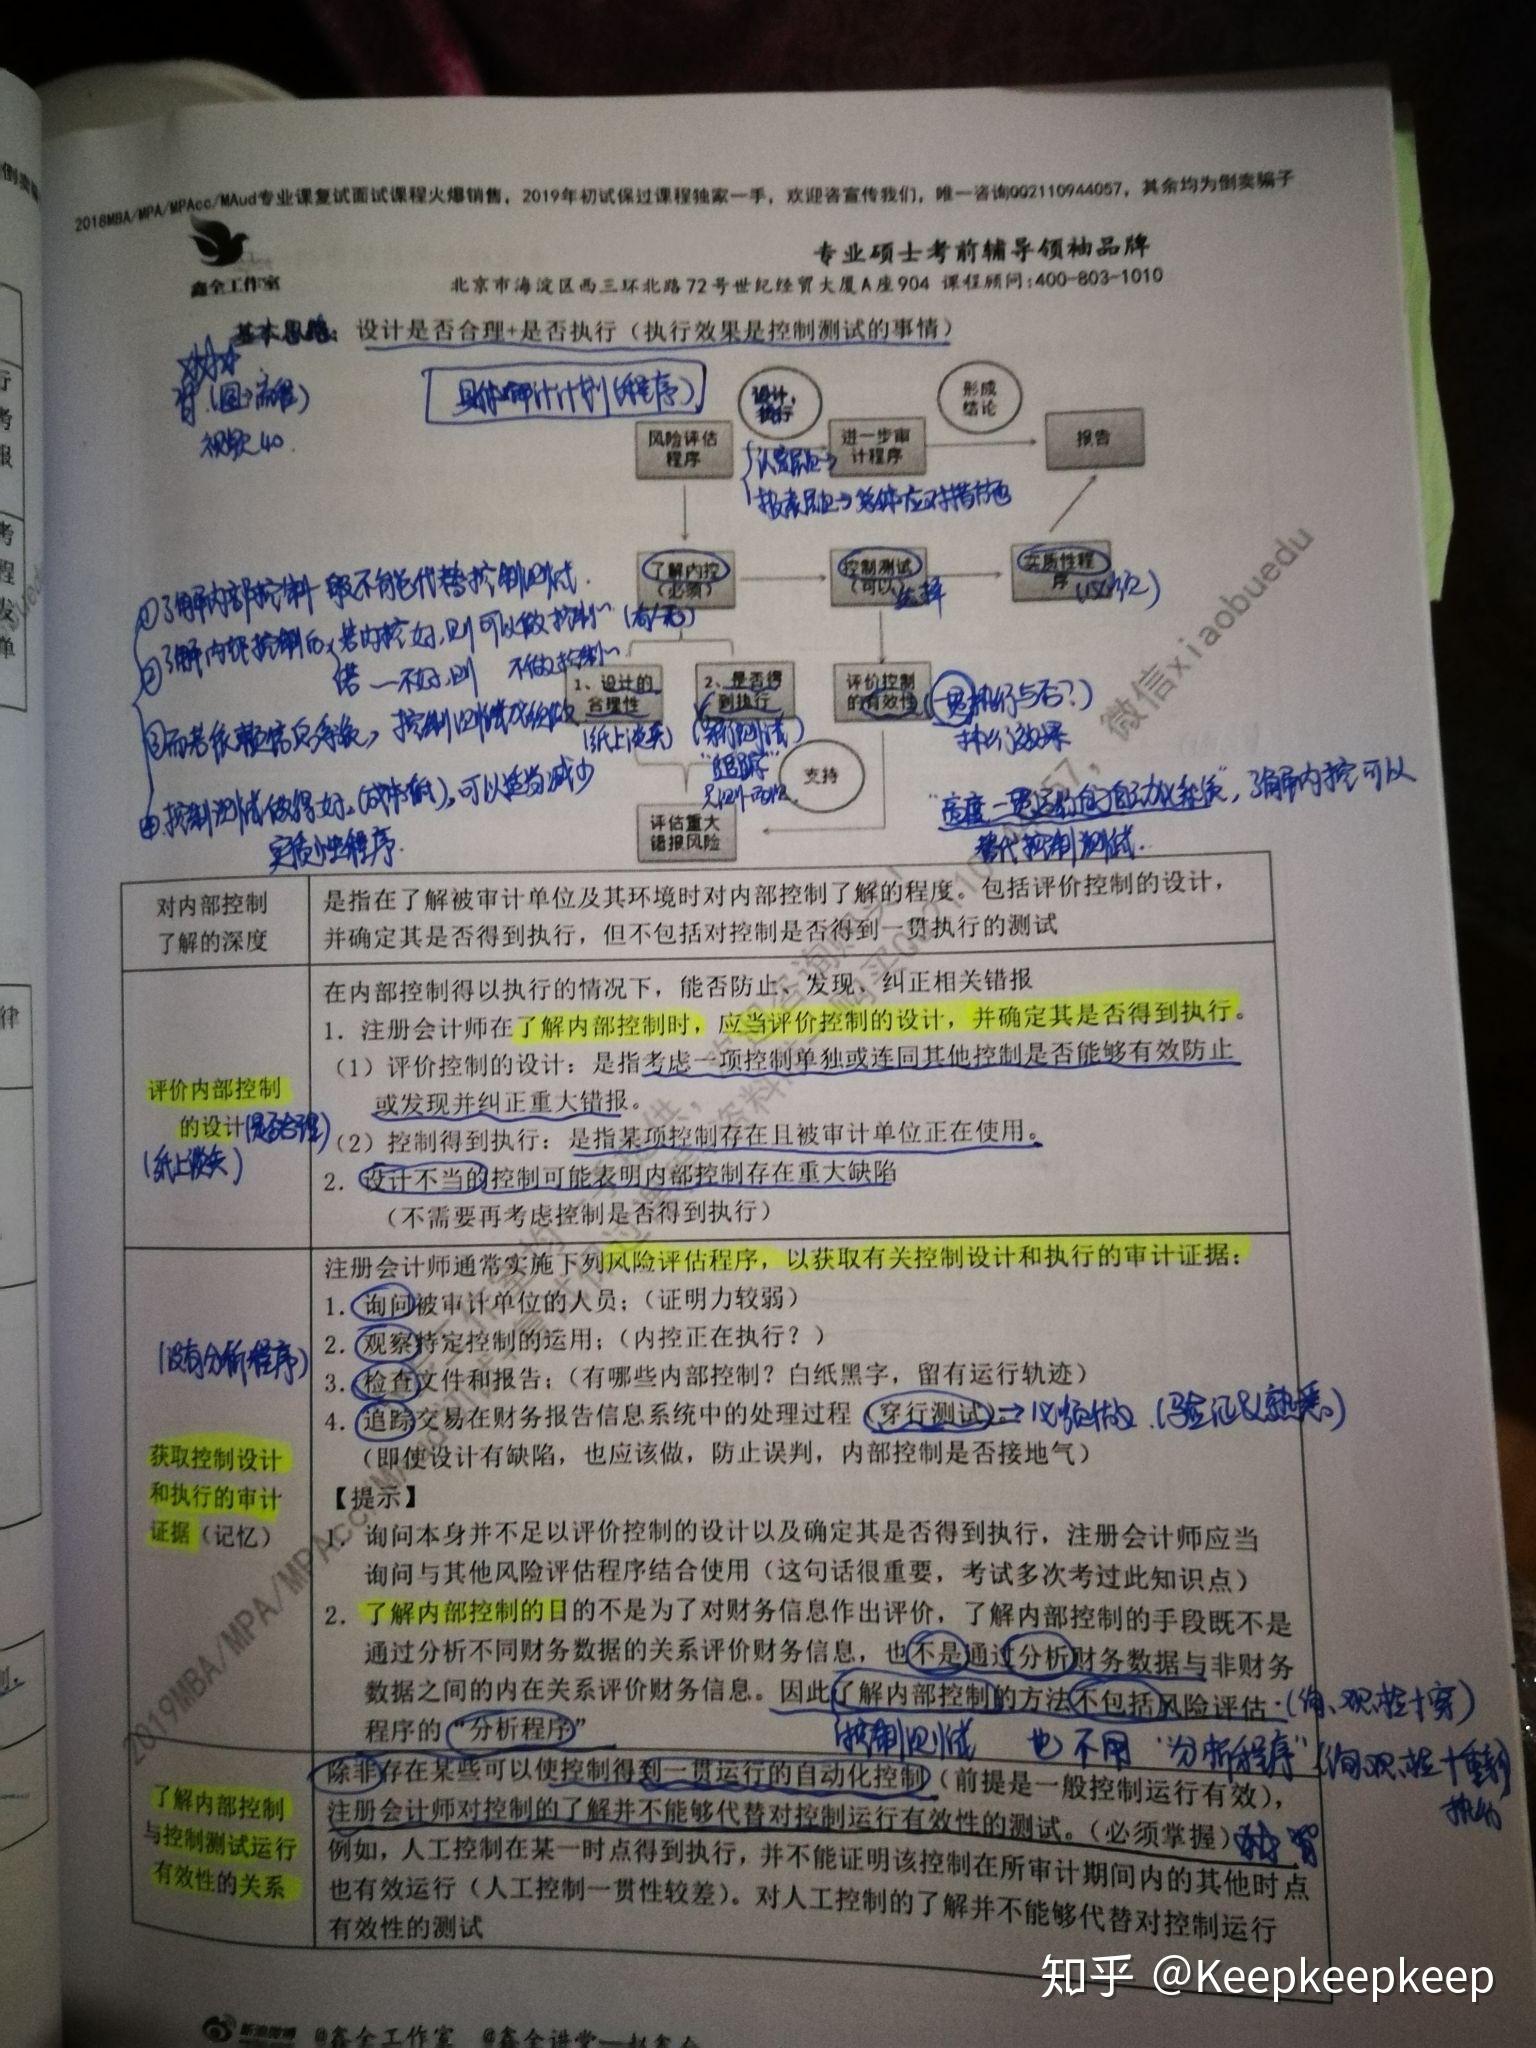 2018MBA/MPA/MPAcc/MAud专业课复试面试课程火爆销售，2019年初试保过课程独家一手，欢迎咨宣传我们，唯一咨询QQ2110944057，其余均为倒卖骗子
鑫全工作室
专业硕士考前辅导领袖品牌
北京市海淀区西三环北路72号世纪经贸大厦A座904 课程顾问:400-803-1010
基本思路：设计是否合理+是否执行（执行效果是控制测试的事情）
背.(图→流程)
视频40.
具体审计计划(程序)
设计，
执行
形成
结论
风险评估
程序
进一步审
计程序
报告
认定层→
报表层→总体应对措施
了解内控
（必须）
控制测试
（可以）
选择
实质性程
序
(必须)
①了解内部控制一般不能代替控制测试.
②了解内部控制后,若内控好,则可以做控制~(有/无)
若一不好,则 不做控制~
1、设计的
合理性
2、是否得
到执行
评价控制
的有效性
(一贯执行与否?)
执行效果
(纸上谈兵)
(穿行测试)
"追踪"
支持
④控制测试做得好.(成本低),可以适当减少
实质性程序.
评估重大
错报风险
了解内控可以
替代控制测试.
对内部控制
了解的深度
是指在了解被审计单位及其环境时对内部控制了解的程度。包括评价控制的设计，
并确定其是否得到执行，但不包括对控制是否得到一贯执行的测试
在内部控制得以执行的情况下，能否防止、发现、纠正相关错报
1．注册会计师在了解内部控制时，应当评价控制的设计，并确定其是否得到执行。
（1）评价控制的设计：是指考虑一项控制单独或连同其他控制是否能够有效防止
或发现并纠正重大错报。
评价内部控制
的设计(是否合理)
(纸上谈兵)
（2）控制得到执行：是指某项控制存在且被审计单位正在使用。
2．设计不当的控制可能表明内部控制存在重大缺陷
（不需要再考虑控制是否得到执行）
注册会计师通常实施下列风险评估程序，以获取有关控制设计和执行的审计证据：
1．询问被审计单位的人员；（证明力较弱）
2．观察特定控制的运用；（内控正在执行？）
(没有分析程序)
3．检查文件和报告；（有哪些内部控制？白纸黑字，留有运行轨迹）
4．追踪交易在财务报告信息系统中的处理过程（穿行测试）。→必须做.(验证&熟悉.)
（即使设计有缺陷，也应该做，防止误判，内部控制是否接地气）
获取控制设计
和执行的审计
证据（记忆）
【提示】
1．询问本身并不足以评价控制的设计以及确定其是否得到执行，注册会计师应当
询问与其他风险评估程序结合使用（这句话很重要，考试多次考过此知识点）
2．了解内部控制的目的不是为了对财务信息作出评价，了解内部控制的手段既不是
通过分析不同财务数据的关系评价财务信息，也不是通过分析财务数据与非财务
数据之间的内在关系评价财务信息。因此了解内部控制的方法不包括风险评估
程序的“分析程序”
(询、观、检+穿)
控制测试 也不用"分析程序"(询、观、检+重新
执行
了解内部控制
与控制测试运行
有效性的关系
除非存在某些可以使控制得到一贯运行的自动化控制（前提是一般控制运行有效），
注册会计师对控制的了解并不能够代替对控制运行有效性的测试。（必须掌握）背
例如，人工控制在某一时点得到执行，并不能证明该控制在所审计期间内的其他时点
也有效运行（人工控制一贯性较差）。对人工控制的了解并不能够代替对控制运行
有效性的测试
微信xiaobuedu
2019MBA/MPA/MPAcc/MA
新浪微博 @鑫全工作室
知乎 @Keepkeepkeep